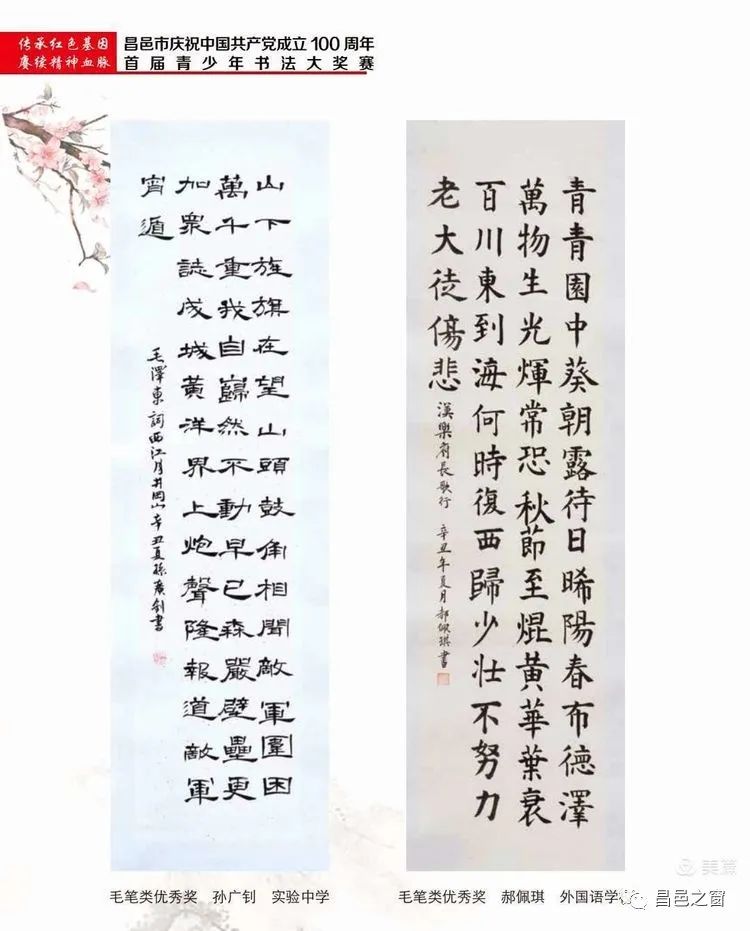 传承红色基因
赓续精神血脉
昌邑市庆祝中国共产党成立100周年
首届青少年书法大奖赛
山下旌旗在望山頭鼓角相聞敵軍圍困
萬千重我自巋然不動早已森嚴壁壘更
加衆誌成城黃洋界上炮聲隆報道敵軍
宵遁
毛澤東詞西江月井岡山辛丑夏孫廣釗書
青青園中葵朝露待日晞陽春布德澤
萬物生光煇常恐秋節至焜黃華葉衰
百川東到海何時復西歸少壯不努力
老大徒傷悲
漢樂府長歌行 辛丑年夏月郝佩琪書
毛笔类优秀奖 孙广钊 实验中学
毛笔类优秀奖 郝佩琪 外国语学
美篇
昌邑之窗